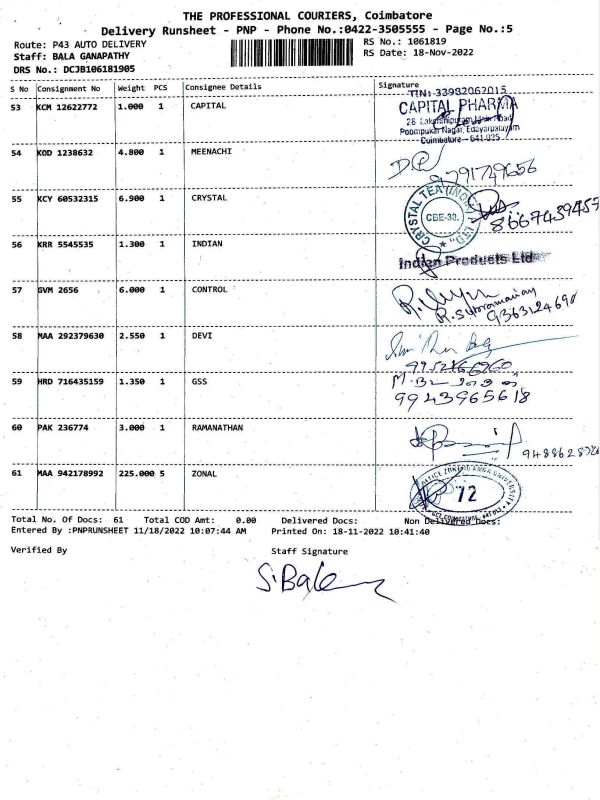 THE PROFESSIONAL COURIERS, Coimbatore
Delivery Runsheet - PNP - Phone No.:0422-3505555 - Page No.:5
Route: P43 AUTO DELIVERY
RS No.: 1061819
Staff: BALA GANAPATHY
RS Date: 18-Nov-2022
DRS No.: DCJB106181905
S No Consignment No Weight PCS Consignee Details Signature
TIN: 33982062015
53 KCM 12622772 1.000 1 CAPITAL CAPITAL PHARMA
26 Lakshmipuram Main Road
Poompukar Nagar, Edayarpalayam
Coimbatore - 641 025
54 KOD 1238632 4.800 1 MEENACHI
9791749656
55 KCY 60532315 6.900 1 CRYSTAL CRYSTAL TEA (INDIA) LTD. CBE-38.
8667439455
56 KRR 5545535 1.300 1 INDIAN
Indian Products Ltd
57 GVM 2656 6.000 1 CONTROL
R. Subramanian
9363124690
58 MAA 292379630 2.550 1 DEVI
9952166760
59 HRD 716435159 1.350 1 GSS
9943965618
60 PAK 236774 3.000 1 RAMANATHAN
61 MAA 942178992 225.000 5 ZONAL 72
Total No. Of Docs: 61 Total COD Amt: 0.00 Delivered Docs: Non Delivered Docs:
Entered By :PNPRUNSHEET 11/18/2022 10:07:44 AM Printed On: 18-11-2022 10:41:40
Verified By Staff Signature
S.Bala